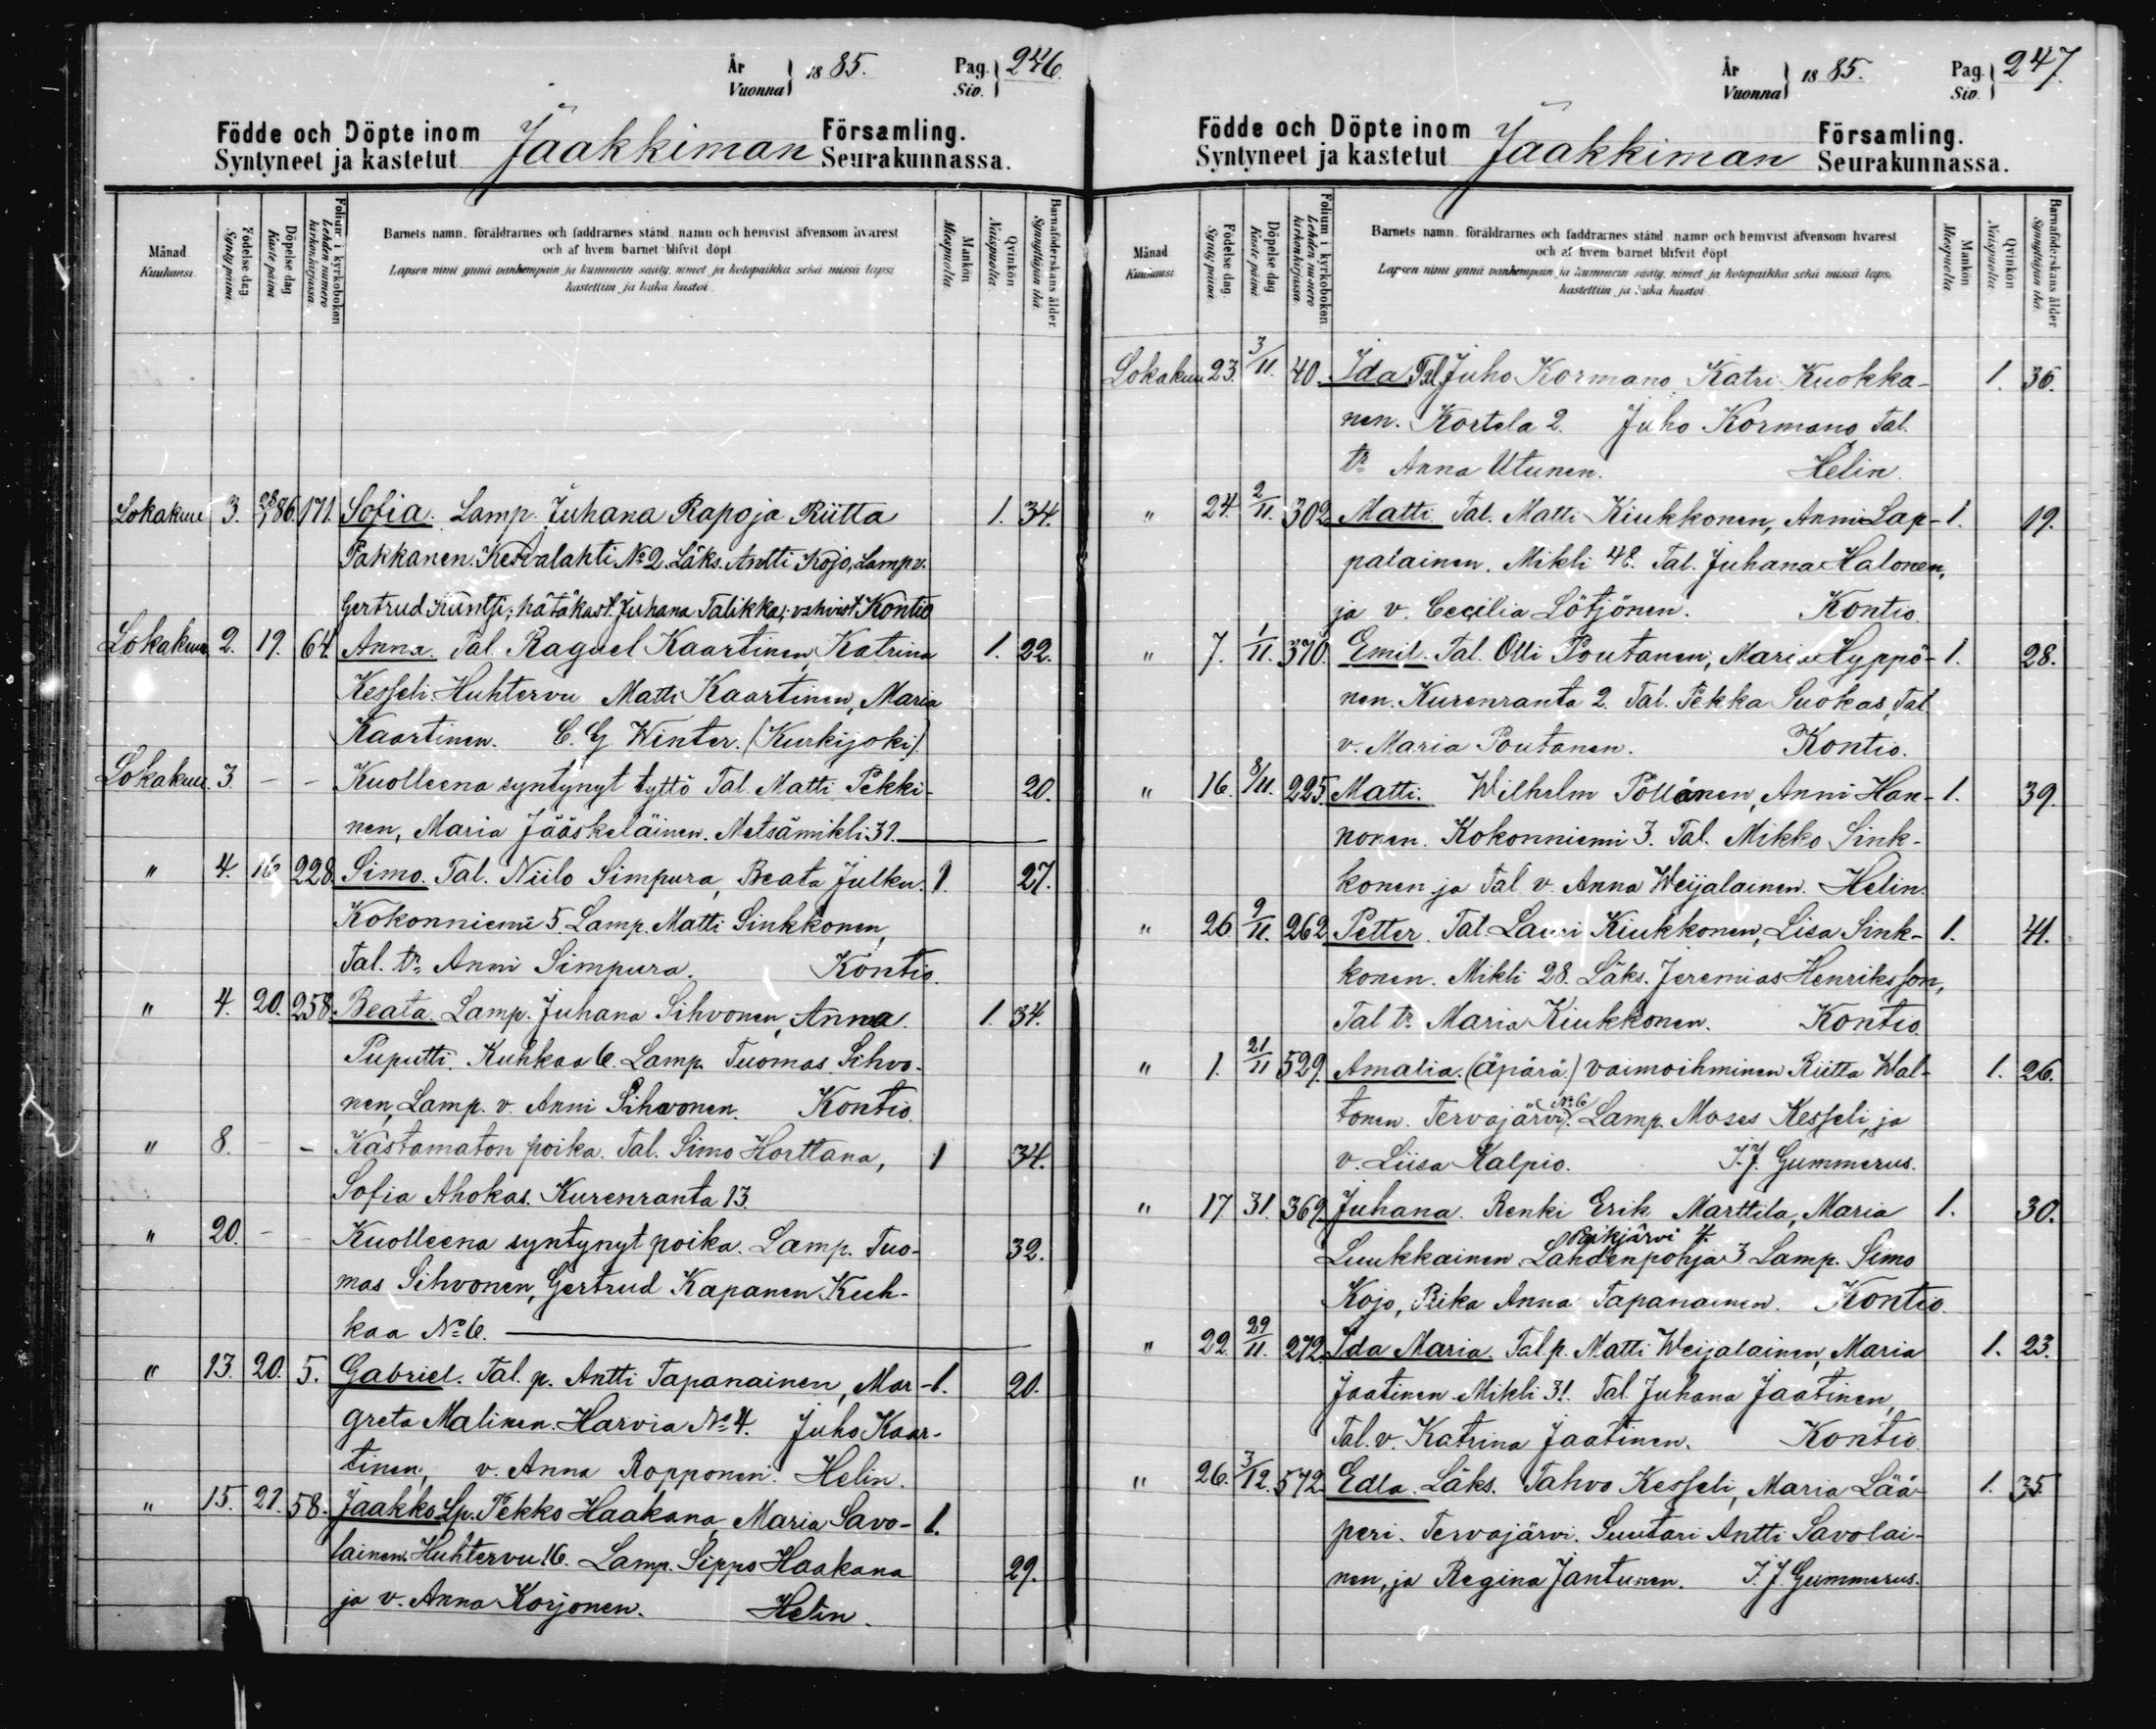 År
Vuonna } 1885. Pag. Siv. } 246.
Födde och Döpte inom Jaakkiman Församling.
Syntyneet ja kastetut Seurakunnassa.
Månad Kuukausi. Födelse dag. Synty päivä. Döpelse dag Kaste päivä Folium i kyrkoboken Lehden numero kirkonkirjassa. Barnets namn, föräldrarnes och faddrarnes stånd, namn och hemvist äfvensom hvarest Mankön Miespuolta. Qvinkön Naispuolta. Barnaföderskans ålder. Synnyttäjän ikä.
och af hvem barnet blifvit döpt.
Lapsen nimi ynnä vanhempain ja kummein sääty, nimet ja kotopaikka sekä missä lapsi
kastettiin ja kuka kastoi.
Lokakuu 3. 28/1 86. 171. Sofia. Lamp. Juhana Rapo ja Riitta 1. 34.
Pakkanen. Kesvalahti No 2. Läks. Antti Kojo, Lamp v.
Gertrud Kuntsi; hätäkast. Juhana Talikka; vahvist. Kontio
Lokakuu 2. 19. 64. Anna. Tal. Raguel Kaartinen, Katrina 1. 22.
Kesseli. Huhtervu Matti Kaartinen, Maria
Kaartinen. C. G Winter. (Kurkijoki)
Lokakuu 3. - - Kuolleena syntynyt tyttö Tal. Matti Pekki- 20.
nen, Maria Jääskeläinen. Metsämikli 31.
" 4. 16 228. Simo. Tal. Niilo Simpura, Beata Julku. 1. 27.
Kokonniemi 5. Lamp. Matti Sinkkonen,
Tal. tr. Anni Simpura. Kontio.
" 4. 20. 258. Beata. Lamp. Juhana Sihvonen, Anna 1. 34.
Puputti. Kuhkaa 6. Lamp. Tuomas Sihvo-
nen, Lamp. v. Anni Sihvonen. Kontio.
" 8. - - Kastamaton poika. Tal. Simo Horttana, 1 34.
Sofia Ahokas. Kurenranta 13.
" 20. - - Kuolleena syntynyt poika. Lamp. Tuo- 32.
mas Sihvonen, Gertrud Kapanen. Kuh-
kaa No 6.
" 13. 20. 5. Gabriel. Tal. p. Antti Tapanainen, Mar- 1. 20.
greta Malinen. Harvia No 4. Juho Kaar-
tinen, v. Anna Ropponen. Helin.
" 15. 21. 58. Jaakko Lp. Pekko Haakana, Maria Savo- 1.
lainen. Huhtervu 16. Lamp. Sippo Haakana 29.
ja v. Anna Korjonen. Helin.
År
Vuonna } 1885. Pag. Siv. } 247.
Födde och Döpte inom Jaakkiman Församling.
Syntyneet ja kastetut Seurakunnassa.
Månad Kuukausi. Födelse dag. Synty päivä. Döpelse dag. Kaste päivä. Folium i kyrkoboken Lehden numero kirkonkirjassa. Barnets namn, föräldrarnes och faddrarnes stånd, namn och hemvist äfvensom hvarest Mankön Miespuolta. Qvinkön Naispuolta. Barnaföderskans ålder. Synnyttäjän ikä.
och af hvem barnet blifvit döpt.
Lapsen nimi ynnä vanhempain ja kummein sääty, nimet ja kotopaikka sekä missä lapsi
kastettiin ja kuka kastoi.
Lokakuu 23. 3/11. 40. Ida Tal Juho Kormano, Katri Kuokka- 1. 36.
nen. Kortela 2. Juho Kormano Tal.
tr. Anna Utunen. Helin.
" 24. 2/11. 302 Matti. Tal. Matti Kiukkonen, Anni Lap- 1. 19.
palainen. Mikli 48. Tal. Juhana Halonen,
ja v. Cecilia Lötjönen. Kontio.
" 7. 1/11. 370. Emil. Tal. Olli Poutanen, Maria Hyppö- 1. 28.
nen. Kurenranta 2. Tal. Pekka Suokas, Tal.
v. Maria Poutanen. Kontio.
" 16. 8/11. 225 Matti. Wilhelm Pöllänen, Anni Han- 1. 39.
nonen. Kokonniemi 3. Tal. Mikko Sink-
konen ja Tal v. Anna Weijalainen. Helin.
" 26 9/11. 262 Petter. Tal. Lauri Kiukkonen, Lisa Sink- 1. 41.
konen. Mikli 28. Läks. Jeremias Henriksson,
Tal tr. Maria Kiukkonen. Kontio
" 1. 21/11 529. Amalia. (Äpärä.) vaimoihminen Riitta Wal- 1. 26.
tonen. Tervajärvi No 6. Lamp. Moses Kesseli, ja
v. Liisa Kalpio. I. J. Gummerus.
" 17 31. 369. Juhana. Renki Erik Marttila, Maria 1. 30.
Reikjärvi 4.
Luukkainen. Lahdenpohja 3. Lamp. Simo
Kojo, Piika Anna Tapanainen. Kontio.
" 22 29/11. 272. Ida Maria. Tal. p. Matti Weijalainen, Maria 1. 23.
Jaatinen. Mikli 31. Tal. Juhana Jaatinen,
Tal. v. Katrina Jaatinen. Kontio.
" 26. 3/12. 572. Edla. Läks. Tahvo Kesseli, Maria Lää- 1. 35
peri. Tervajärvi. Suutari Antti Savolai-
nen, ja Regina Jantunen. I. J. Gummerus.